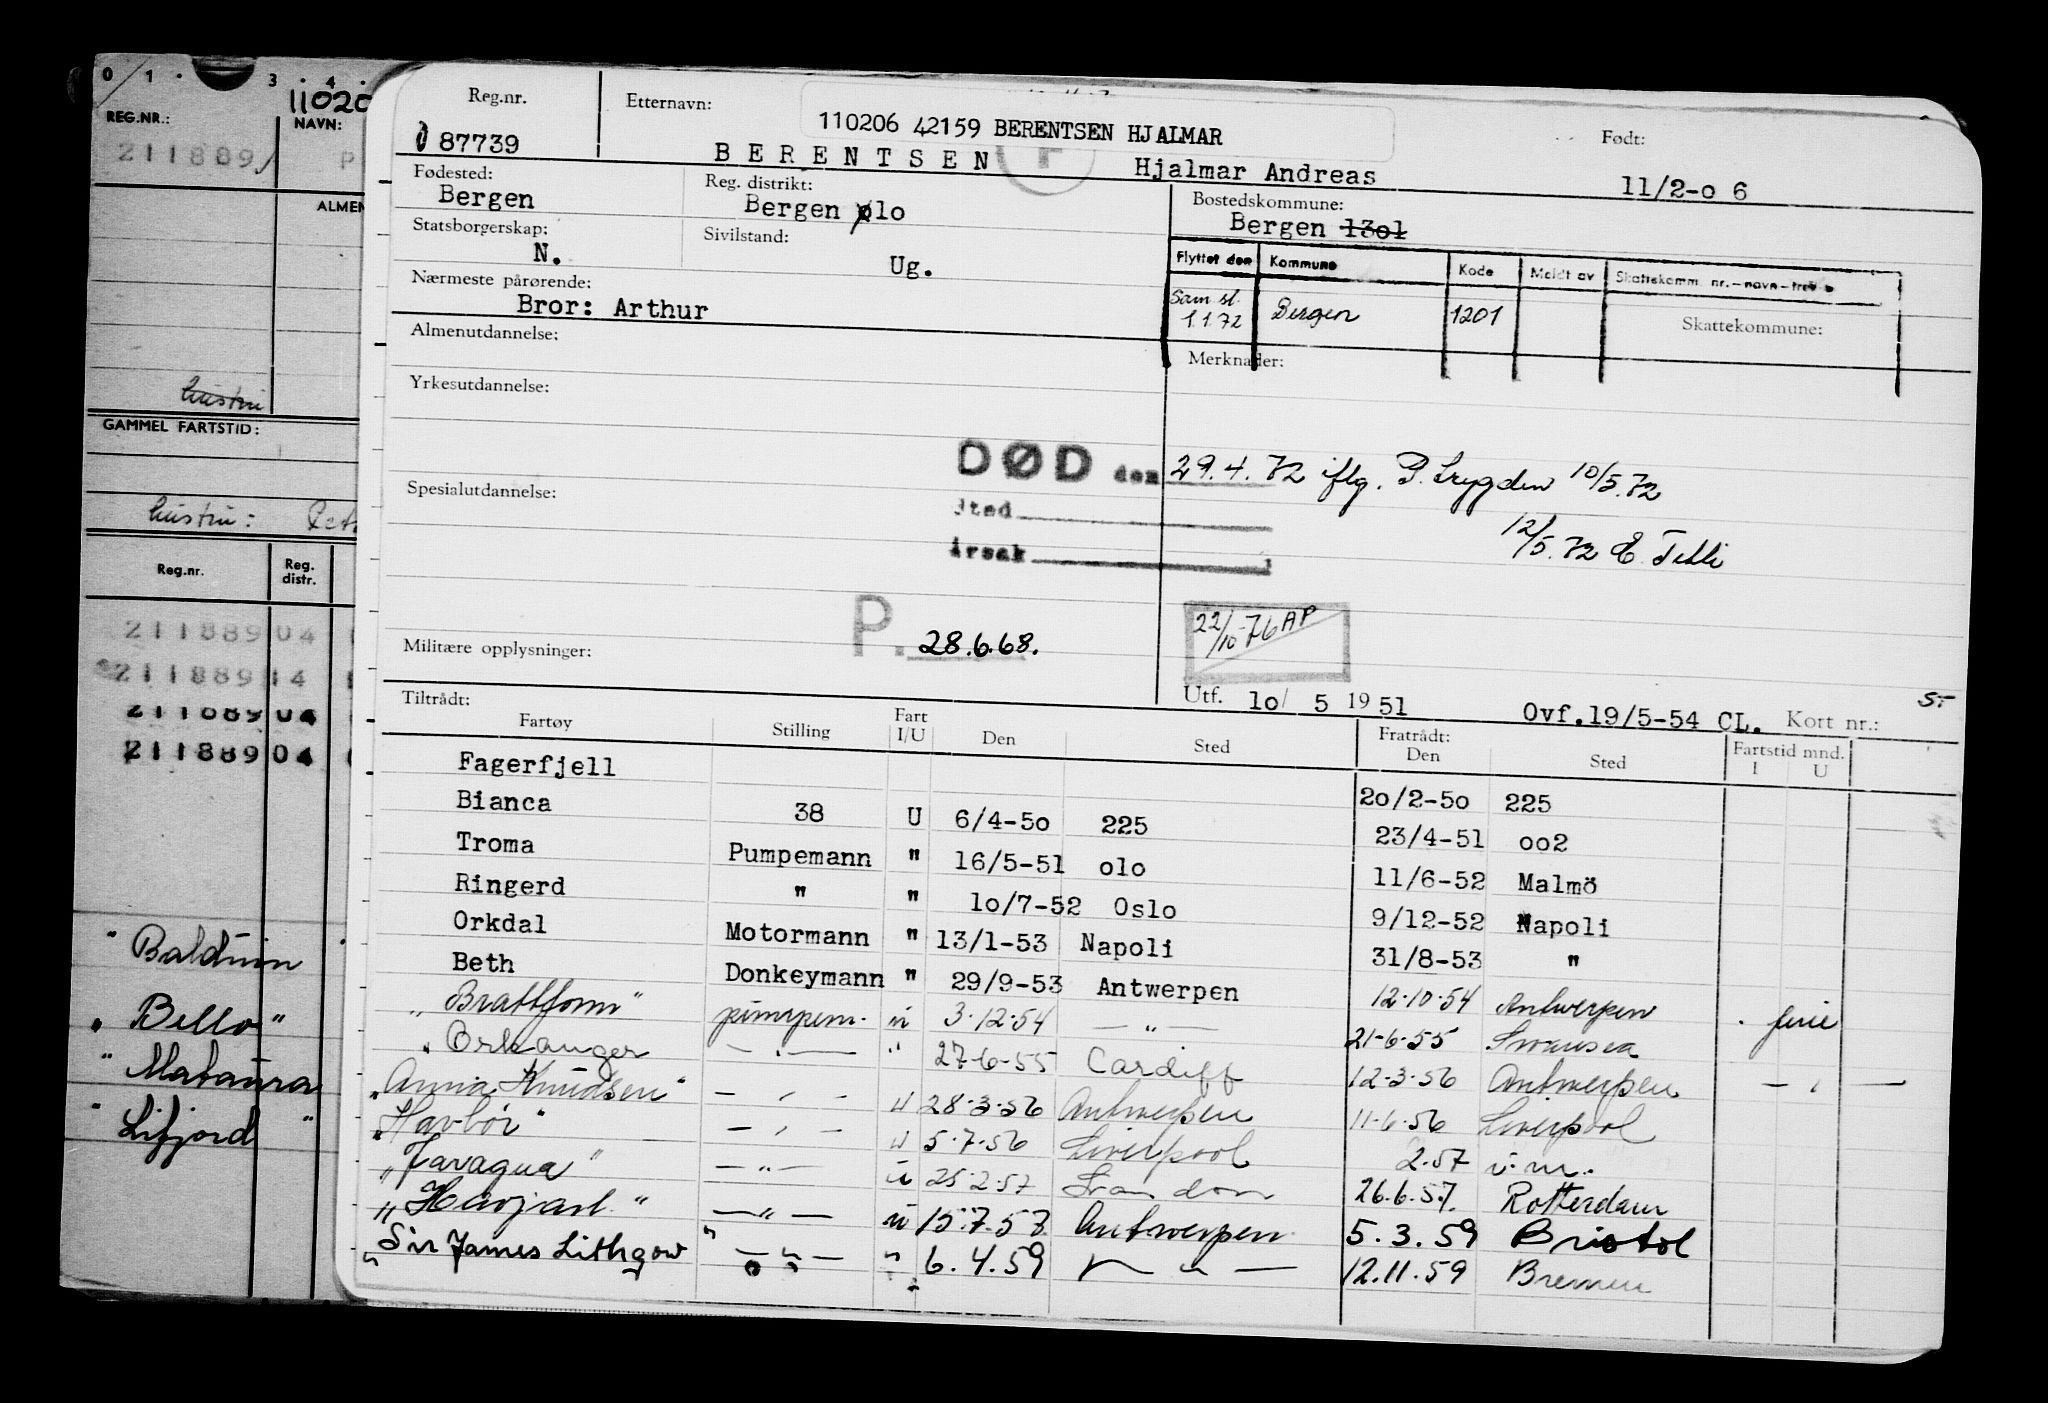 0 1 3 4
11020
REG.NR.: NAVN:
211889 P
ALMEN
hustru
GAMMEL FARTSTID:
hustru: Pet
Reg.nr. Reg. distr.
211889 04
211889 14
211889 04
211889 04
" Baldwin
" Bello "
" Mataura
" Lifjord "
Reg.nr. Etternavn: Født:
110206 42159 BERENTSEN HJALMAR
87739 BERENTSEN Hjalmar Andreas 11/2-o 6
Fødested: Reg. distrikt: Bostedskommune:
Bergen Bergen olo Bergen 13o1
Statsborgerskap: Sivilstand:
N. Ug.
Flyttet den Kommune Kode Meldt av Skattekomm. nr.-navn-trekk
Sam.sl. 1.1.72 Bergen 1201
Skattekommune:
Nærmeste pårørende:
Bror: Arthur
Almenutdannelse:
Merknader:
Yrkesutdannelse:
DØD den 29.4.72 iflg. P.trygden 10/5.72
Sted
årsak
12/5.72 E. Tilli
Spesialutdannelse:
P. 28.6.68.
22/10-76 AP
Militære opplysninger:
Utf. 1o/ 5 1951 Ovf.19/5-54 CL. Kort nr.: S-
Tiltrådt: Fratrådt:
Fartøy Stilling Fart I/U Den Sted Den Sted Fartstid mnd. I U
Fagerfjell 2o/2-5o 225
Bianca 38 U 6/4-5o 225 23/4-51 oo2
Troma Pumpemann " 16/5-51 olo 11/6-52 Malmö
Ringerd " " 1o/7-52 Oslo 9/12-52 Napoli
Orkdal Motormann " 13/1-53 Napoli 31/8-53 "
Beth Donkeymann " 29/9-53 Antwerpen 12.10.54 Antwerpen . ferie
" Brattholm " pumpem. u 3.12.54 — " — 21-6-55 Swansea
" Orkanger — " — " 27-6-55 Cardiff 12-3-56 Antwerpen — " —
" Anna Knudsen " — " — u 28-3-56 Antwerpen 11-6-56 Liverpool
" Havbör " — " — u 5-7-56 Liverpool 2.57 v.m.
" Jaragua " — " — u 25-2-57 26.6.57. Rotterdam
" Havjarl " — " — u 15.7.57 Antwerpen 5.3.59 Bristol
" Sir James Lithgow " — " — " 6.4.59 — " — 12.11.59 Bremen